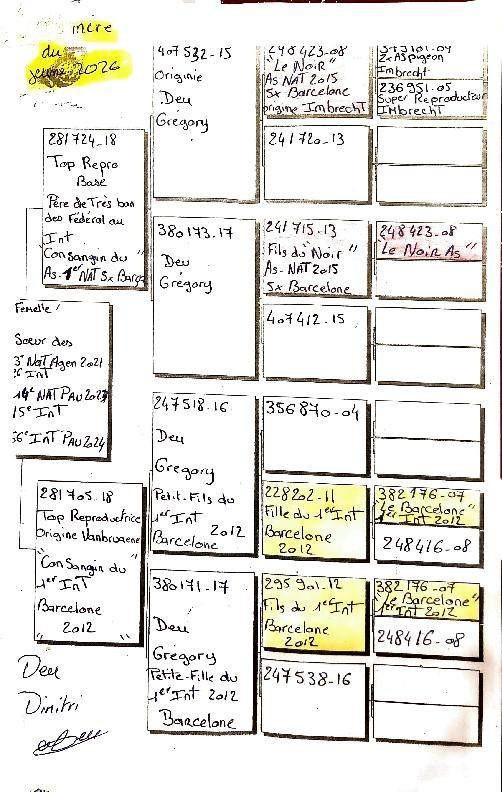 mere
du
jeune 2026
281724-18
Top Repro
Base
Père de Très bon
des Fédéral au
Int
Consangin du "
As-1er NAT 5x Barç
Femelle
Sœur des
3e NAT Agen 2021
e INT
14e NAT PAU 2023
15e INT
56e INT PAU 2024
281705-18
Top Reproductrice
Origine Vanbruaene
"Consangin du
1er INT
Barcelone
2012 "
Deu
Dimitri
407532-15
Originie
Deu
Grégory
380173-17
Deu
Grégory
247518-16
Deu
Gregory
Petit-Fils du
1er Int
2012
Barcelone
380171-17
Deu
Grégory
Petite-Fille du
1er Int 2012
Barcelone
248423-08
"Le Noir"
As NAT 2015
5x Barcelone
origine Imbrecht
241720-13
241715-13
Fils du Noir "
As-NAT 2015
5x Barcelone
407412-15
356870-04
228202-11
Fille du 1er Int
Barcelone
2012
295901-12
Fils du 1er Int
Barcelone
2012
247538-16
2x AS pigeon
Imbrecht
236951-05
Super Reproducteur
IMbrecht
248423-08
"Le Noir As"
382176-07
"Le Barcelone"
1er Int 2012
248416-08
382176-07
"Le Barcelone"
1er Int 2012
248416-08